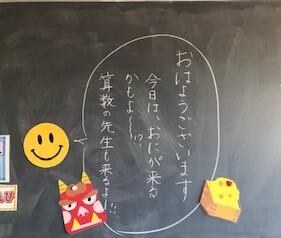 おはようございます
今日は、おにが来る
かもよ〜〜!?
算数の先生も来るよ!!